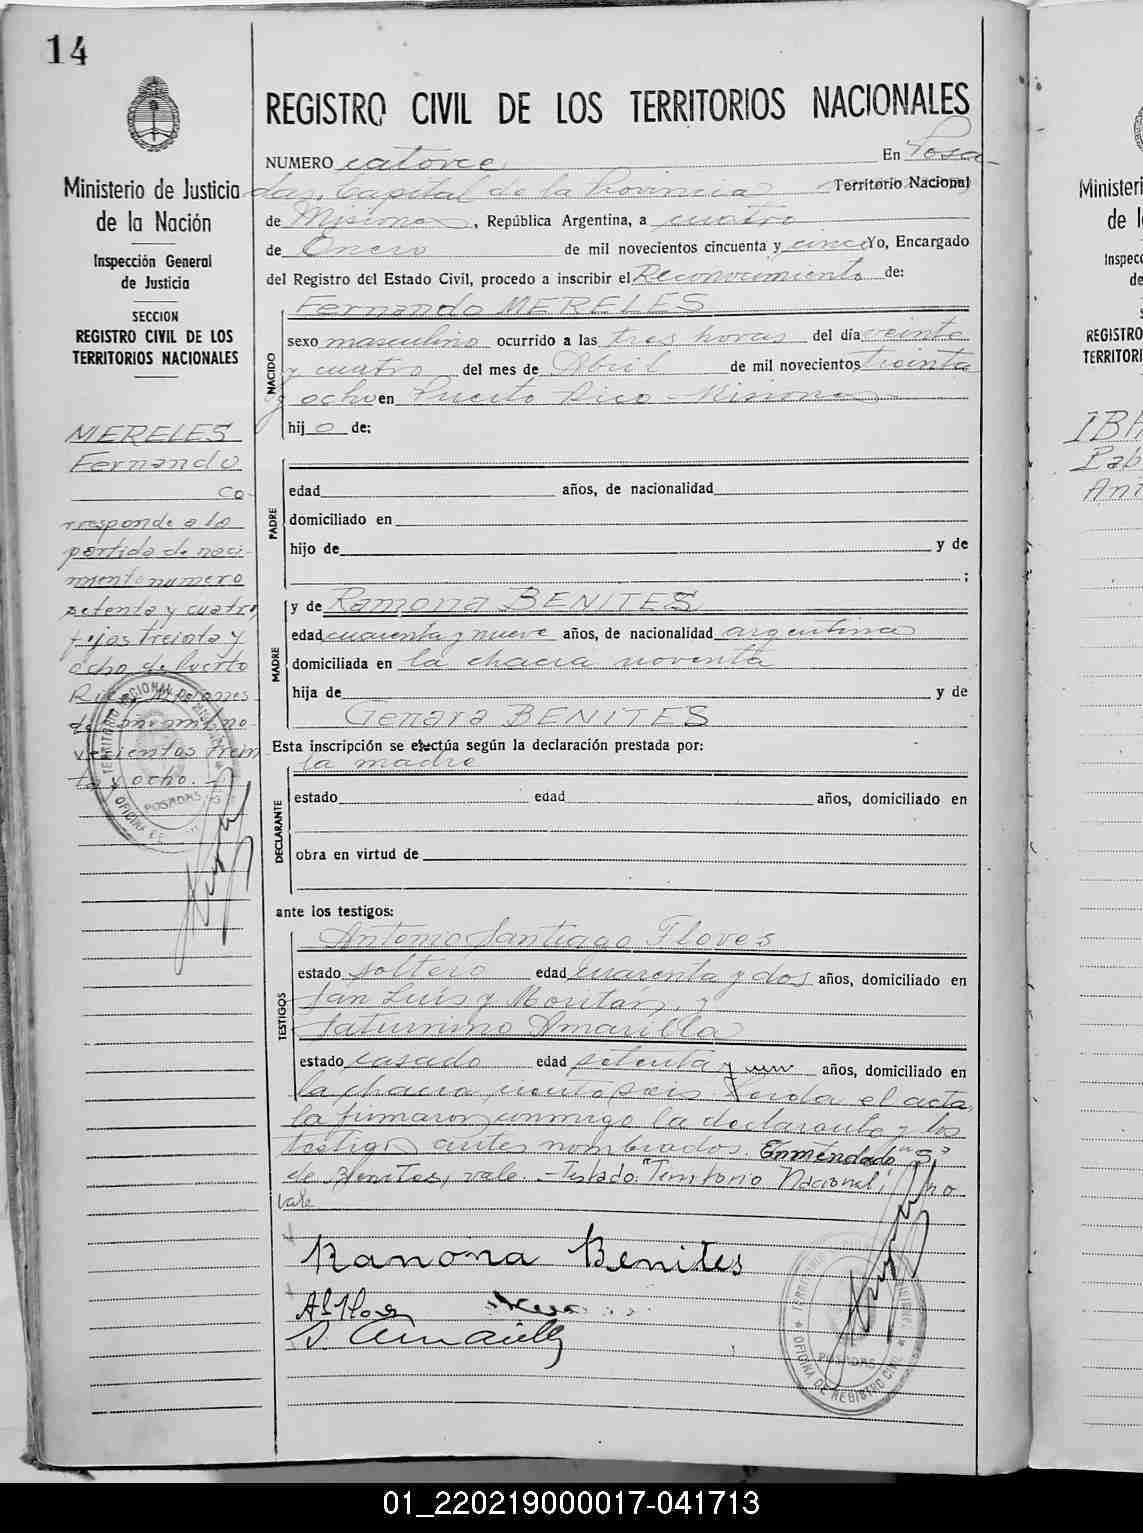 14
Ministerio de Justicia
de la Nación
Inspección General
de Justicia
SECCION
REGISTRO CIVIL DE LOS
TERRITORIOS NACIONALES
MERELES
Fernando
Co-
rresponde a la
partida de naci-
miento numero
setenta y cuatro,
fojas treinta y
ocho, de Puerto
Rico, Misiones
del año mil no-
vecientos trein-
ta y ocho.
REGISTRO CIVIL DE LOS TERRITORIOS NACIONALES
NUMERO catorce, En Posa-
das, Capital de la Provincia Territorio Nacional
de Misiones, República Argentina, a cuatro
de Enero de mil novecientos cincuenta y cinco Yo, Encargado
del Registro del Estado Civil, procedo a inscribir el Reconocimiento de:
NACIDO
Fernando MERELES
sexo masculino ocurrido a las tres horas del día veinte
y cuatro del mes de Abril de mil novecientos treinta
y ocho en Puerto Rico - Misiones
hijo de:
PADRE
edad años, de nacionalidad
domiciliado en
hijo de y de
;
MADRE
y de Ramona BENITES
edad cuarenta y nueve años, de nacionalidad argentina
domiciliada en la chacra noventa
hija de y de
Genara BENITES
Esta inscripción se efectúa según la declaración prestada por:
la madre
DECLARANTE
estado edad años, domiciliado en
obra en virtud de
ante los testigos:
TESTIGOS
Antonio Santiago Flores
estado soltero edad cuarenta y dos años, domiciliado en
San Luis y Moritan, y
Saturnino Amarilla
estado casado edad setenta y un años, domiciliado en
la chacra ciento seis. Leida el acta,
la firmaron conmigo la declarante y los
testigos antes nombrados. Enmendado "S"
de Benites, vale. - Testado: "Territorio Nacional", no
vale
Ramona Benites
S. Amarilla
TERRITORIO NACIONAL DE MISIONES
POSADAS
OFICINA DE REGISTRO CIVIL
Minister
de l
Inspecc
de
REGISTRO
TERRITORI
IBA
Pab
Ant
01_220219000017-041713